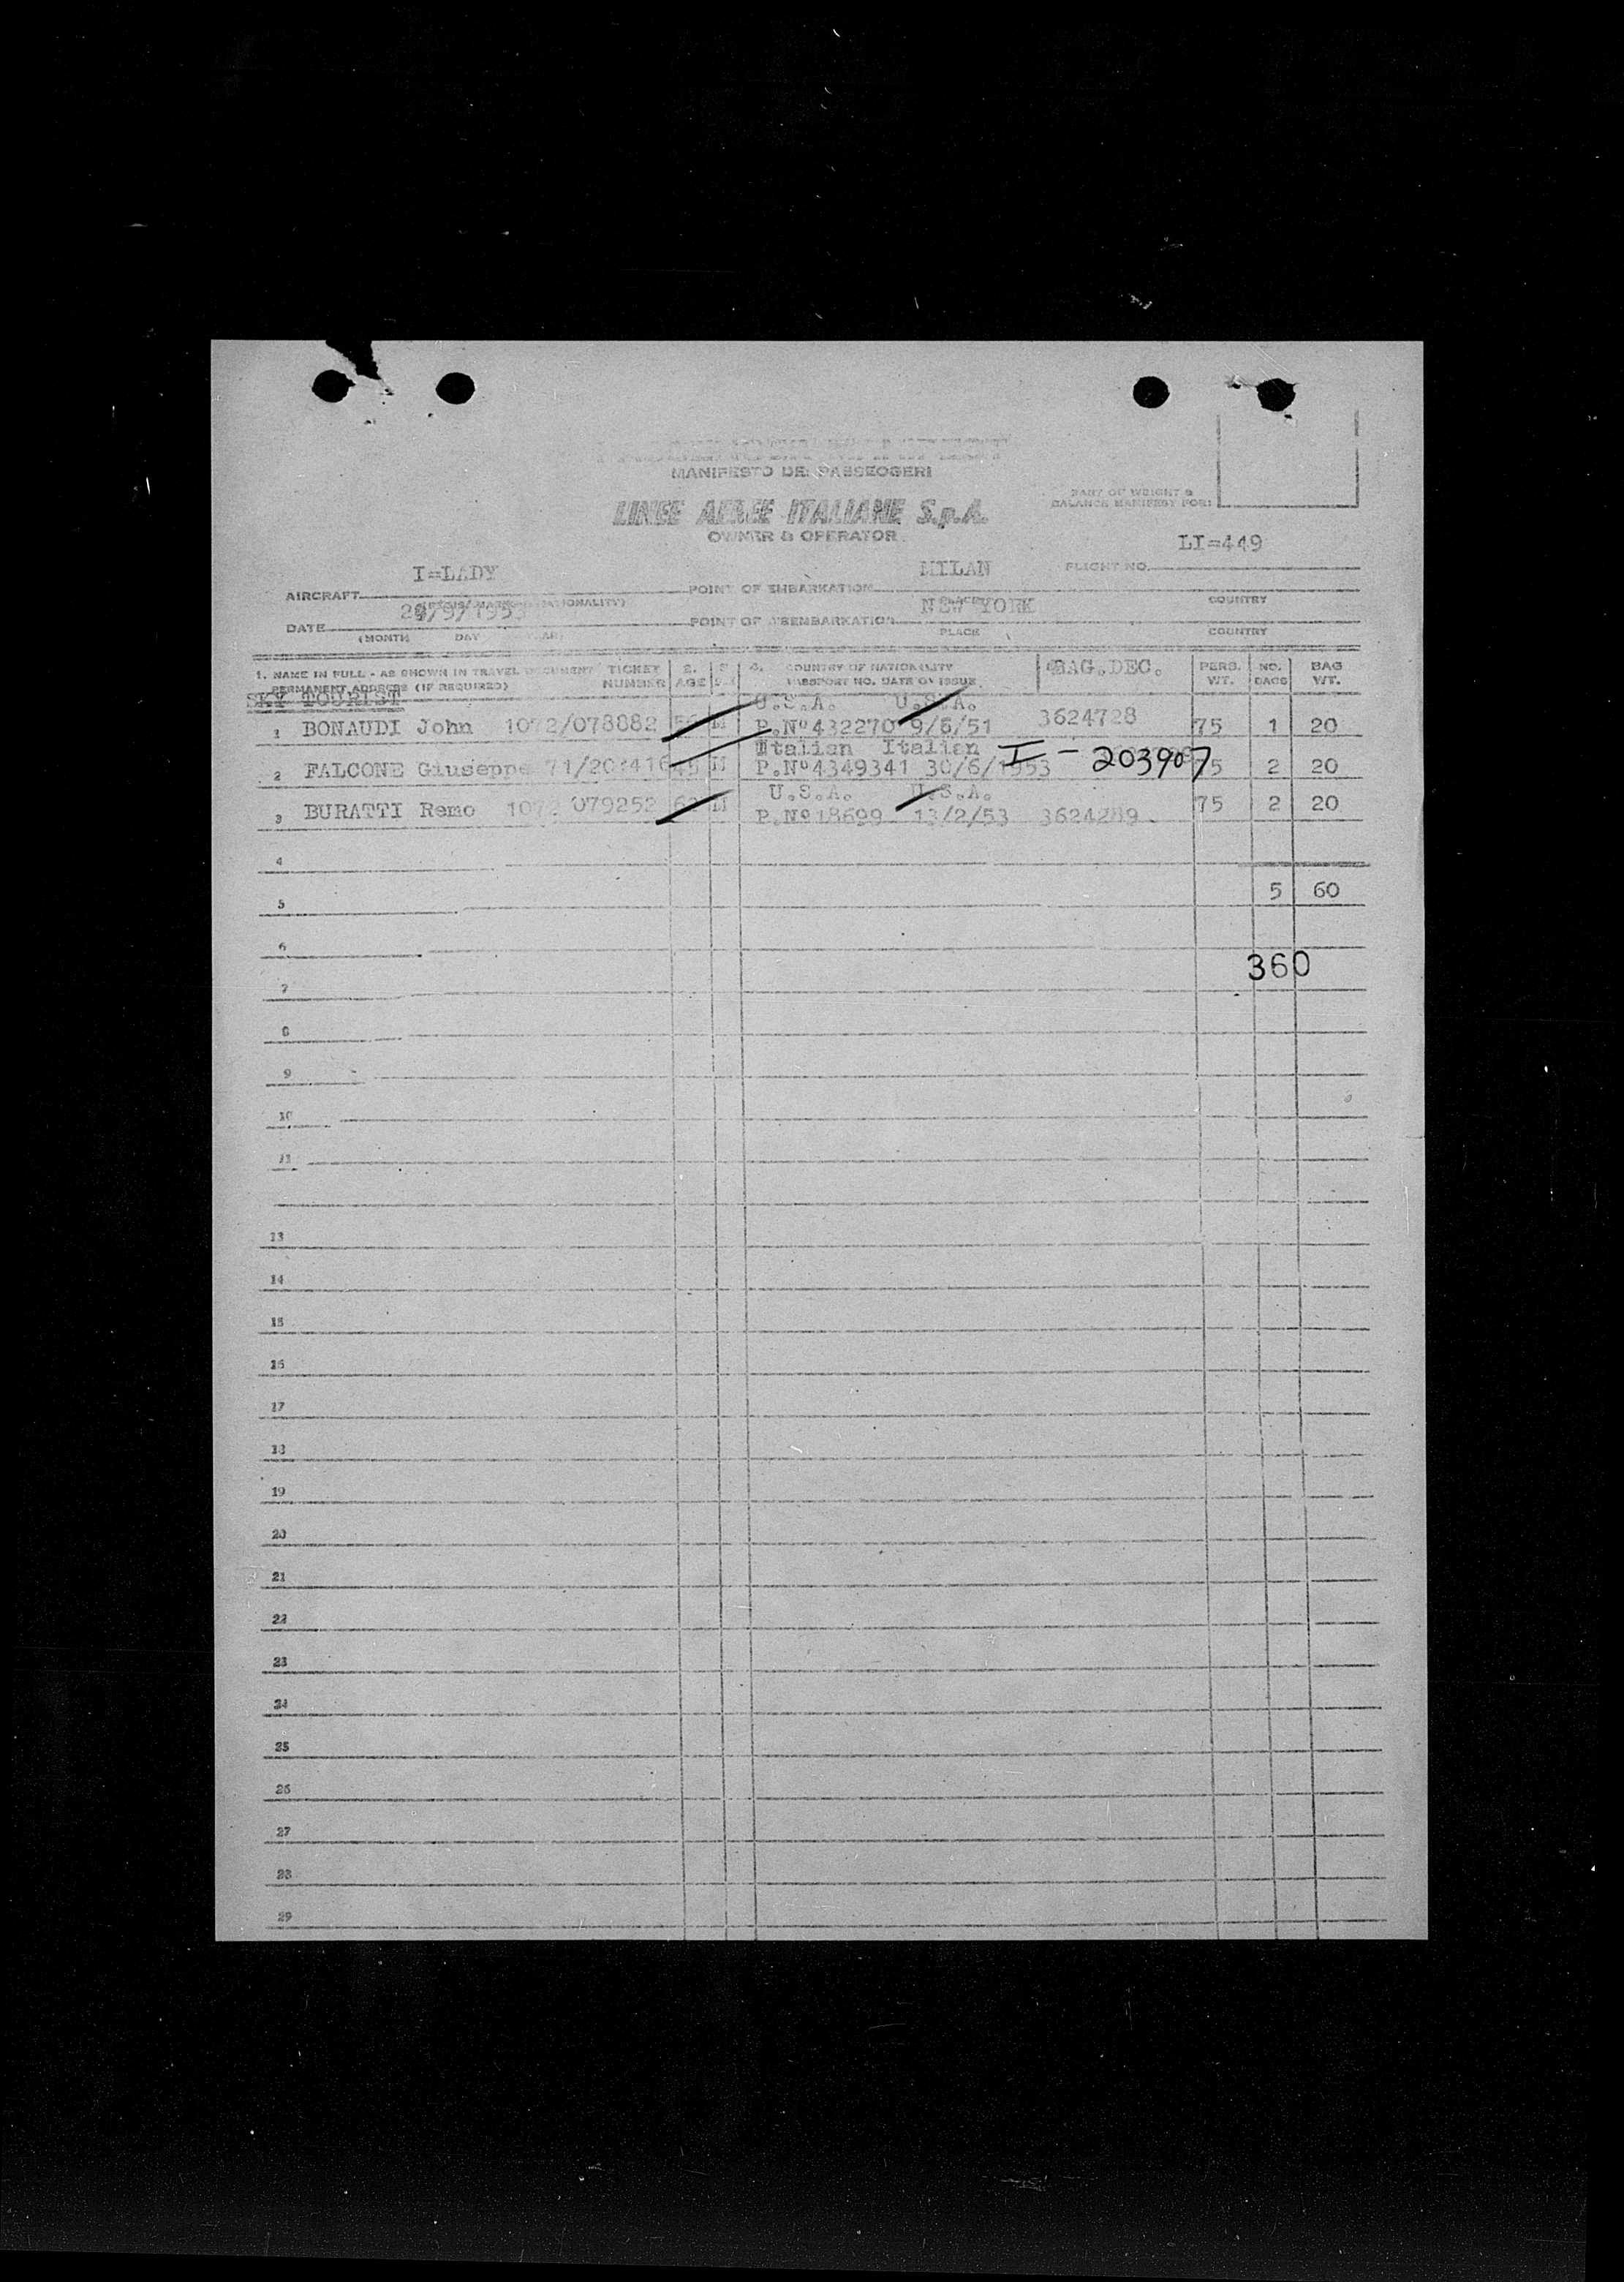 MANIFESTO DEI PASSEGGERI
LINEE AEREE ITALIANE S.p.A.
OWNER & OPERATOR
PART OF WEIGHT &
BALANCE MANIFEST FOR:
LI=449
FLIGHT NO.
I=LADY
AIRCRAFT
MILAN
POINT OF EMBARKATION
PLACE
COUNTRY
/9/1953
DATE
(MONTH DAY YEAR)
NEW YORK
POINT OF DISEMBARKATION
PLACE
COUNTRY
1. NAME IN FULL - AS SHOWN IN TRAVEL DOCUMENT
PERMANENT ADDRESS (IF REQUIRED)
TICKET
NUMBER
2.
AGE
4. COUNTRY OF NATIONALITY
PASSPORT NO. DATE OF ISSUE
BAG.DEC.
PERS.
WT.
NO.
BAGS
BAG
WT.
SKY TOURIST
U.S.A. U.S.A.
1 BONAUDI John 1072/078882 M P.Nº432270 9/6/51 3624728 75 1 20
Italian Italian
2 FALCONE Giuseppe M P.Nº4349341 30/6/1953 I - 203907 75 2 20
U.S.A. U.S.A.
3 BURATTI Remo 1072 079252 M P.Nº18699 13/2/53 3624289 75 2 20
4
5 5 60
6
360
7
8
9
10
11
13
14
15
16
17
18
19
20
21
22
23
24
25
26
27
28
29